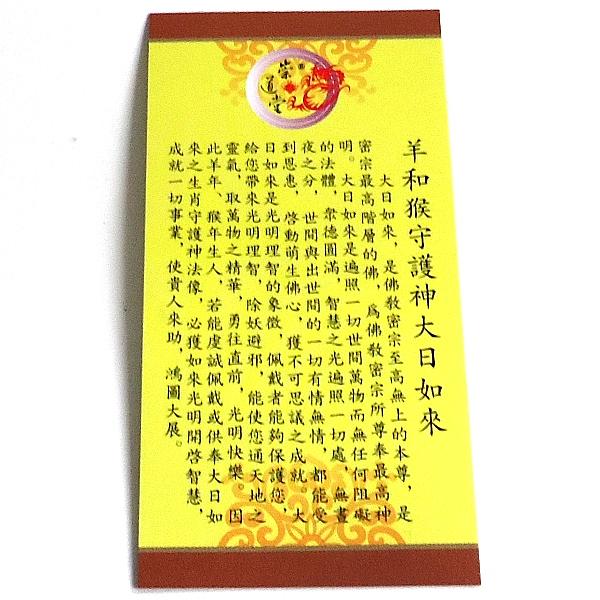 崇道堂
羊和猴守護神大日如來
大日如來，是佛教密宗至高無上的本尊，是
密宗最高階層的佛，為佛教密宗所尊奉最高神
明。大日如來是遍照一切世間萬物而無任何阻礙
的法體，衆德圓滿，智慧之光遍照一切處，無晝
夜之分，世間與出世間的一切有情無情，都能受
到恩惠，啓動萌生佛心，獲不可思議之成就。大
日如來是光明理智的象徵，佩戴者能夠保護您，
給您帶來光明理智，除妖避邪，能使您通天地之
靈氣，取萬物之精華，勇往直前，光明快樂。因
此羊年、猴年生人，若能虔誠佩戴或供奉大日如
來之生肖守護神法像，必獲如來光明開啓智慧，
成就一切事業，使貴人來助，鴻圖大展。